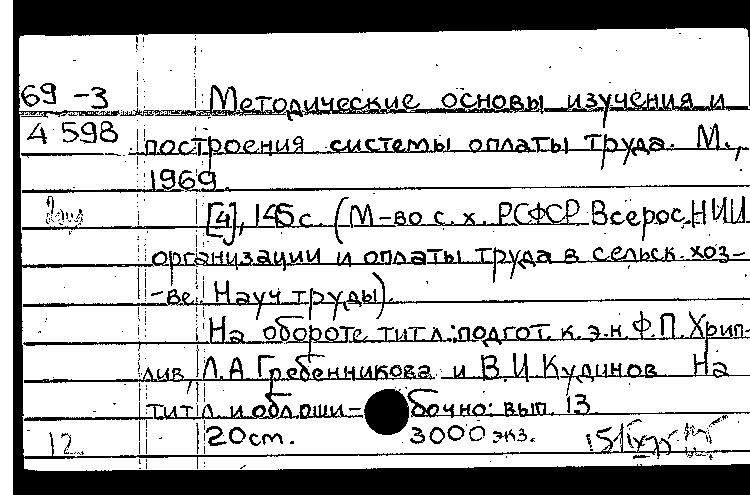 69-3 Методические основы изучения и
А 598 построения системы оплаты труда. М.,
1969.
[4], 145 с. (М-во с. х. РСФСР Всерос. НИИ
организации и оплаты труда в сельск. хоз-
-ве. Науч. труды).
На обороте тит. л.: подгот. к. э. н. Ф. П. Хрип-
лив, Л. А. Гребенникова и В. И. Кудинов На
тит. л. и облоши- бочно: вып. 13.
12. 20 см. 3000 экз.